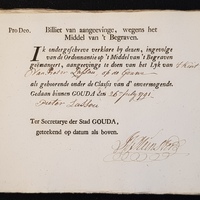 Pro Deo.
Billiet van aangeevinge, wegens het
Middel van 't Begraven.
Ik ondergeschreve verklare by desen, ingevolge
van de Ordonnantie op 't Middel van 't Begraven
geëmaneert, aangevinge te doen van het Lyk van
op de
als gehoorende onder de Classis van d' onvermogende.
Gedaan binnen GOUDA den 26 July 1791
Pieter
Ter Secretarye der Stad GOUDA,
geteekend op datum als boven.